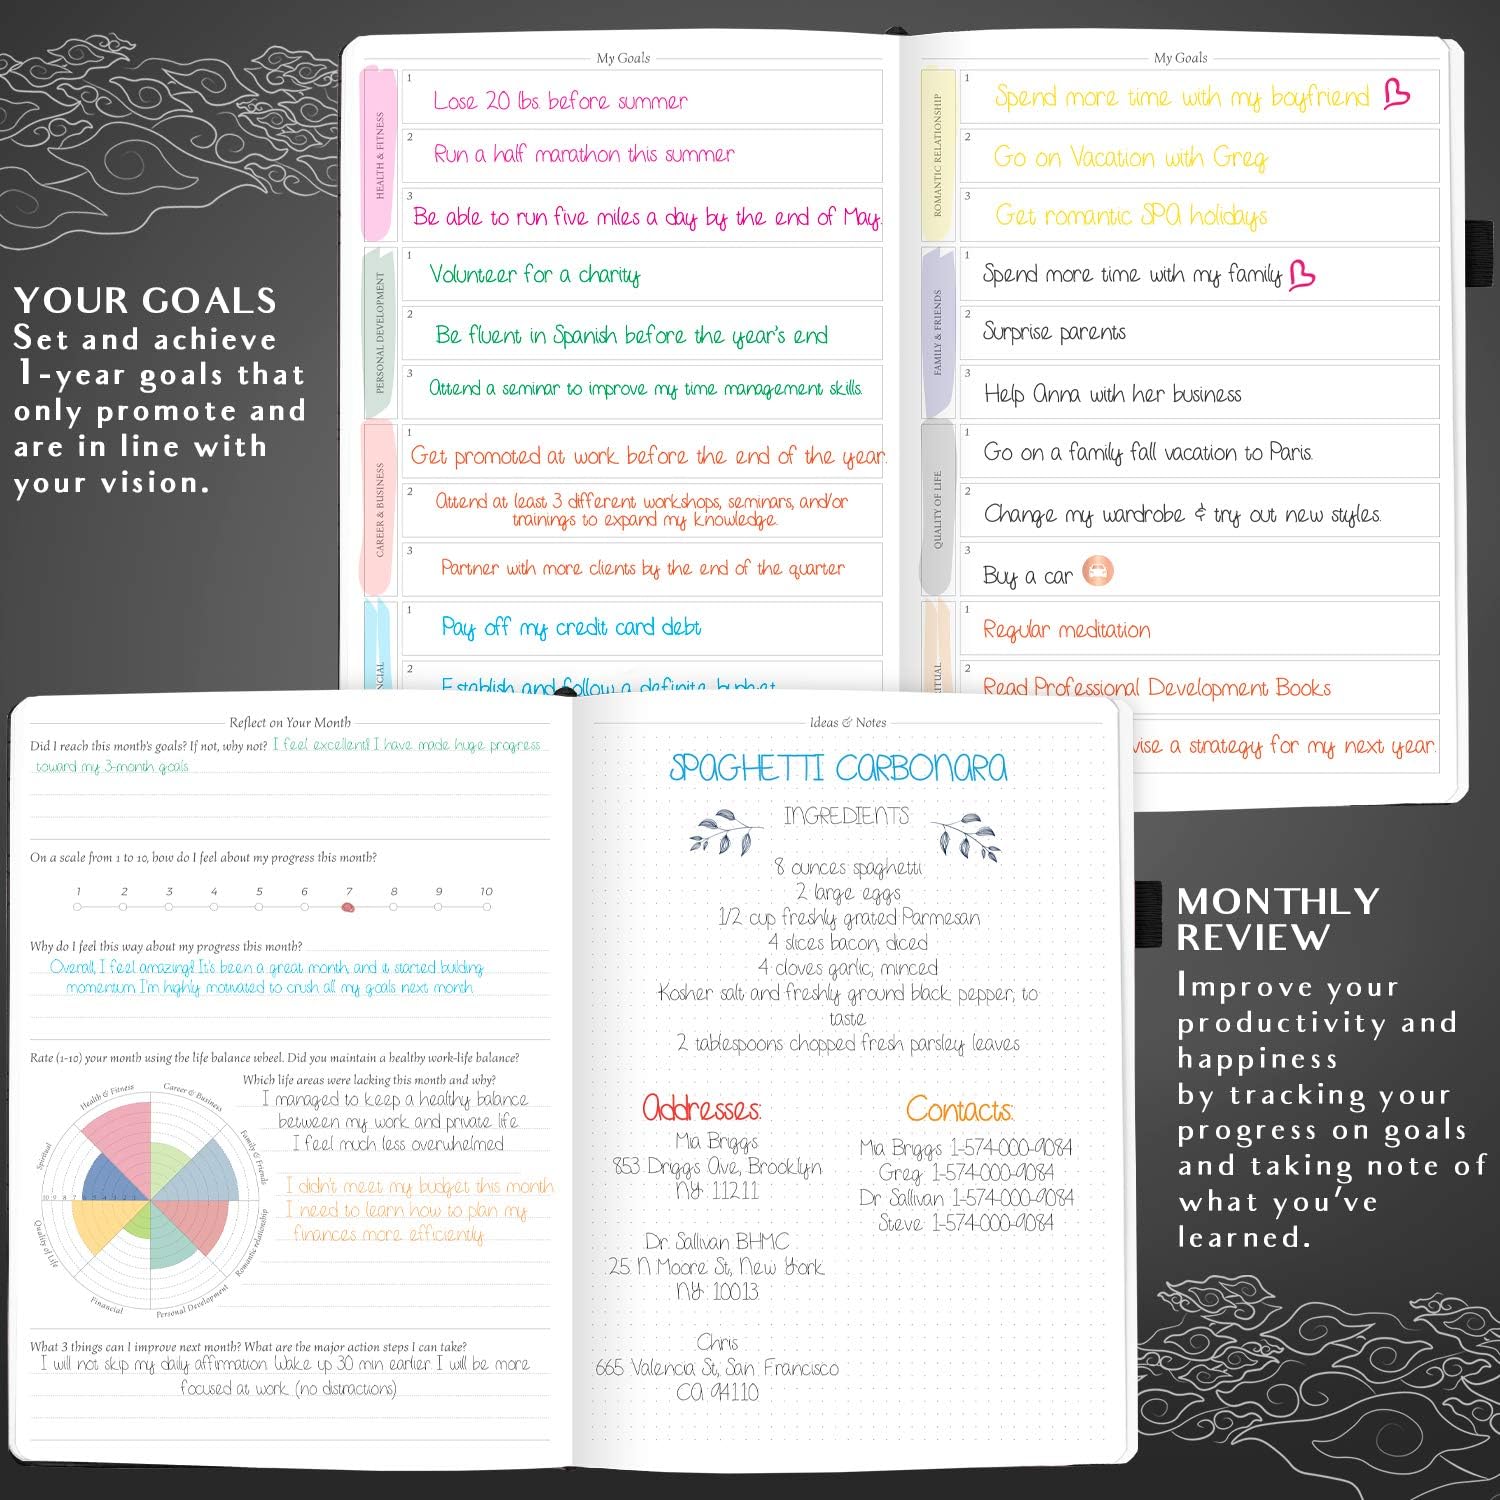 My Goals
HEALTH & FITNESS
1
Lose 20 lbs. before summer
2
Run a half marathon this summer
3
Be able to run five miles a day by the end of May.
PERSONAL DEVELOPMENT
1
Volunteer for a charity
2
Be fluent in Spanish before the year's end
3
Attend a seminar to improve my time management skills.
CAREER & BUSINESS
1
Get promoted at work before the end of the year.
2
Attend at least 3 different workshops, seminars, and/or
trainings to expand my knowledge.
3
Partner with more clients by the end of the quarter
NCIAL
1
Pay off my credit card debt
2
Establish and follow a definite budget
My Goals
ROMANTIC RELATIONSHIP
1
Spend more time with my boyfriend
2
Go on Vacation with Greg
3
Get romantic SPA holidays
FAMILY & FRIENDS
1
Spend more time with my family
2
Surprise parents
3
Help Anna with her business
QUALITY OF LIFE
1
Go on a family fall vacation to Paris.
2
Change my wardrobe & try out new styles.
3
Buy a car
RITUAL
1
Regular meditation
2
Read Professional Development Books
vise a strategy for my next year.
YOUR GOALS
Set and achieve
1-year goals that
only promote and
are in line with
your vision.
Reflect on Your Month
Did I reach this month's goals? If not, why not? I feel excellent! I have made huge progress
toward my 3-month goals
On a scale from 1 to 10, how do I feel about my progress this month?
1 2 3 4 5 6 7 8 9 10
Why do I feel this way about my progress this month?
Overall, I feel amazing! It's been a great month, and it started building
momentum. I'm highly motivated to crush all my goals next month.
Rate (1-10) your month using the life balance wheel. Did you maintain a healthy work-life balance?
Health & Fitness
Career & Business
Family & Friends
Romantic relationship
Personal Development
Financial
Quality of Life
Spiritual
10 9 8 7 6 5 4 3 2 1
Which life areas were lacking this month and why?
I managed to keep a healthy balance
between my work and private life.
I feel much less overwhelmed
I didn't meet my budget this month.
I need to learn how to plan my
finances more efficiently.
What 3 things can I improve next month? What are the major action steps I can take?
I will not skip my daily affirmation. Wake up 30 min earlier. I will be more
focused at work (no distractions)
Ideas & Notes
SPAGHETTI CARBONARA
INGREDIENTS
8 ounces spaghetti
2 large eggs
1/2 cup freshly grated Parmesan
4 slices bacon, diced
4 cloves garlic, minced
Kosher salt and freshly ground black pepper, to
taste
2 tablespoons chopped fresh parsley leaves
Addresses:
Mia Briggs
853 Driggs Ave, Brooklyn
NY 11211
Dr. Sallivan BHMC
25 N Moore St, New York
NY 10013
Chris
665 Valencia St, San Francisco
CA 94110
Contacts:
Mia Briggs 1-574-000-9084
Greg 1-574-000-9084
Dr Sallivan 1-574-000-9084
Steve 1-574-000-9084
MONTHLY
REVIEW
Improve your
productivity and
happiness
by tracking your
progress on goals
and taking note of
what you've
learned.